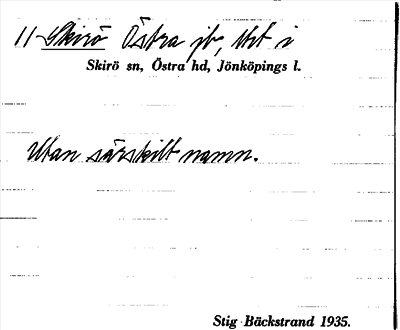 11 Skirö Östra jb, litt i
Skirö sn, Östra hd, Jönköpings l.
Utan särskilt namn.
Stig Bäckstrand 1935.